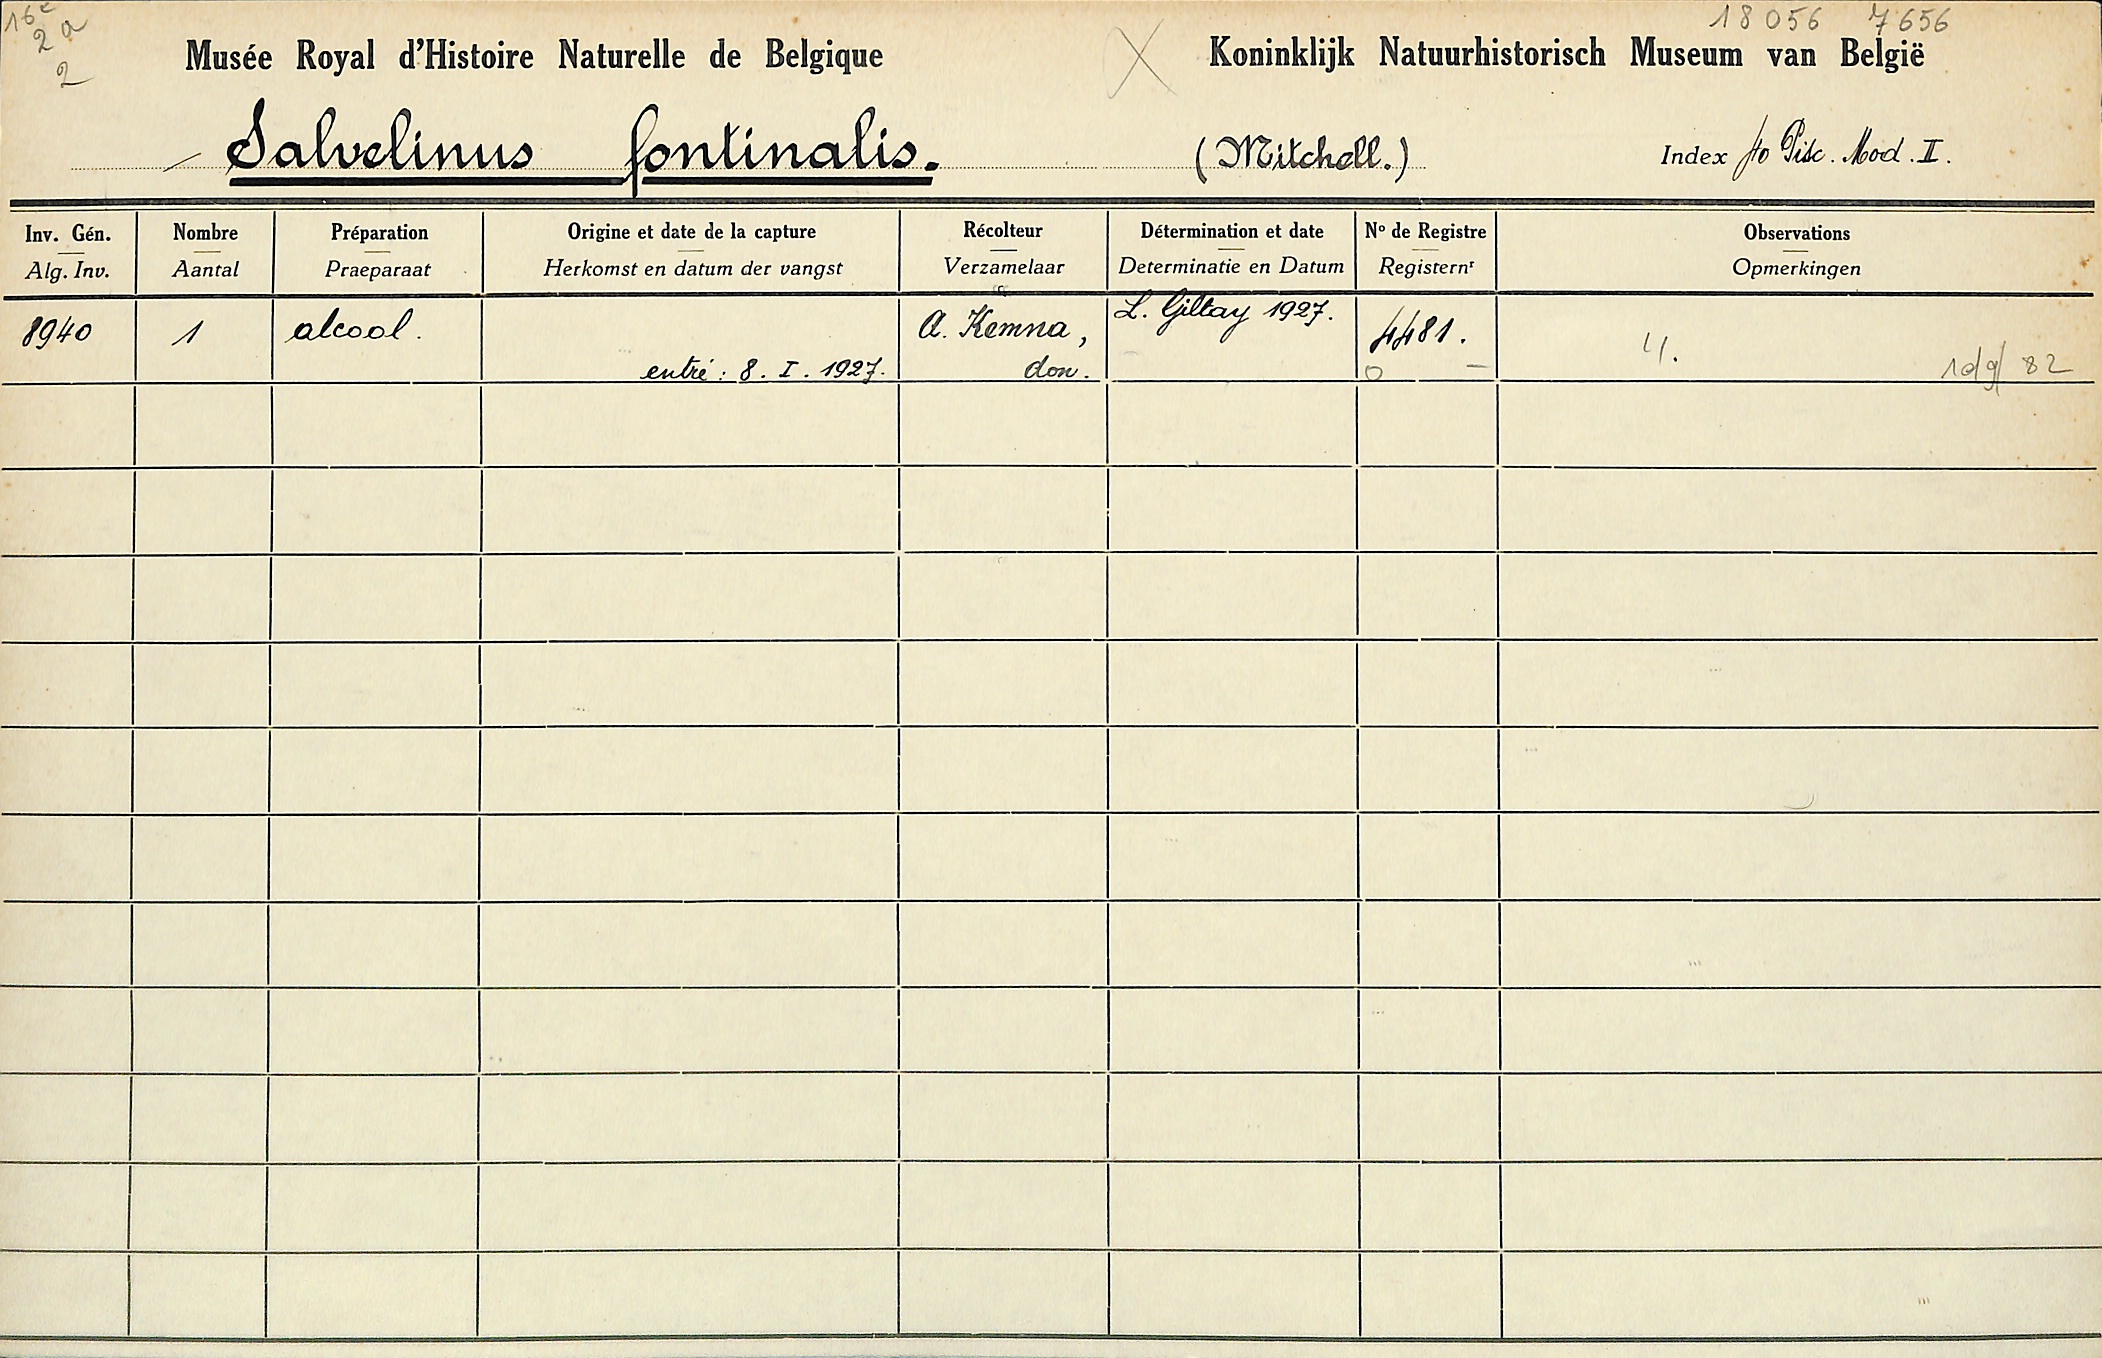 16e
2 a
2
18056 7656
Musée Royal d'Histoire Naturelle de Belgique
Koninklijk Natuurhistorisch Museum van België
Salvelinus fontinalis.
(Mitchell.)
Index fto Pisc. Mod. I.
Inv. Gén.
Alg. Inv.
Nombre
Aantal
Préparation
Praeparaat
Origine et date de la capture
Herkomst en datum der vangst
Récolteur
Verzamelaar
Détermination et date
Determinatie en Datum
No de Registre
Registernr
Observations
Opmerkingen
8940
1
alcool.
entré : 8. I. 1927.
A. Kemna,
don.
L. Giltay 1927.
4481.
82